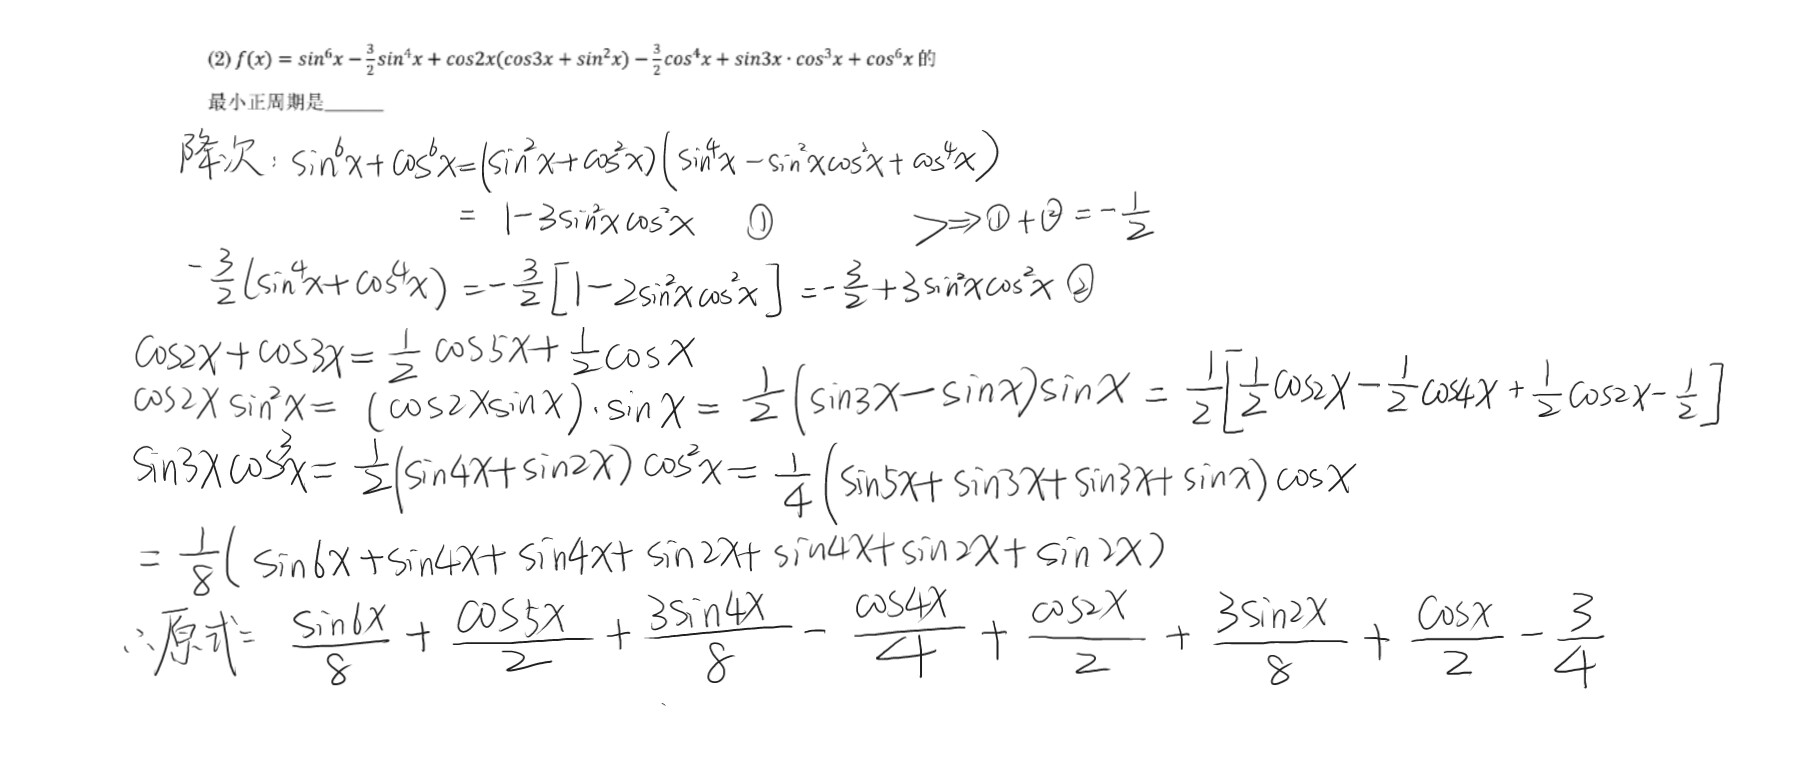 (2) f(x) = sin⁶x − 3/2 sin⁴x + cos2x(cos3x + sin²x) − 3/2 cos⁴x + sin3x · cos³x + cos⁶x 的
最小正周期是______
降次: sin⁶x + cos⁶x = (sin²x + cos²x)(sin⁴x − sin²xcos²x + cos⁴x)
= 1 − 3sin²xcos²x ① >⇒ ① + ② = −1/2
−3/2(sin⁴x + cos⁴x) = −3/2[1 − 2sin²xcos²x] = −3/2 + 3sin²xcos²x ②
cos2x + cos3x = 1/2 cos5x + 1/2 cosx
cos2x sin²x = (cos2xsinx)·sinx = 1/2(sin3x − sinx)sinx = 1/2[1/2 cos2x − 1/2 cos4x + 1/2 cos2x − 1/2]
sin3xcos³x = 1/2(sin4x + sin2x)cos²x = 1/4(sin5x + sin3x + sin3x + sinx)cosx
= 1/8(sin6x + sin4x + sin4x + sin2x + sin4x + sin2x + sin2x)
∴原式= sin6x/8 + cos5x/2 + 3sin4x/8 − cos4x/4 + cos2x/2 + 3sin2x/8 + cosx/2 − 3/4